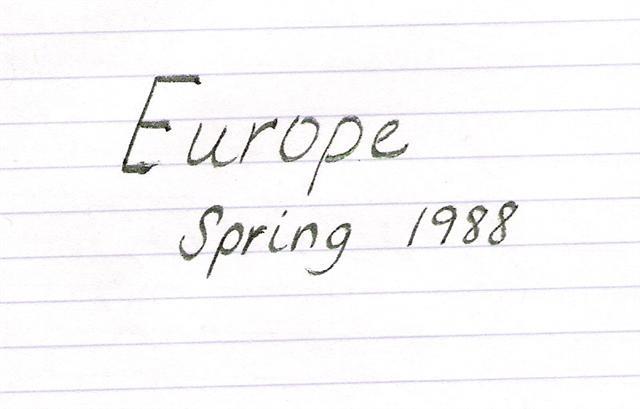 Europe
Spring 1988